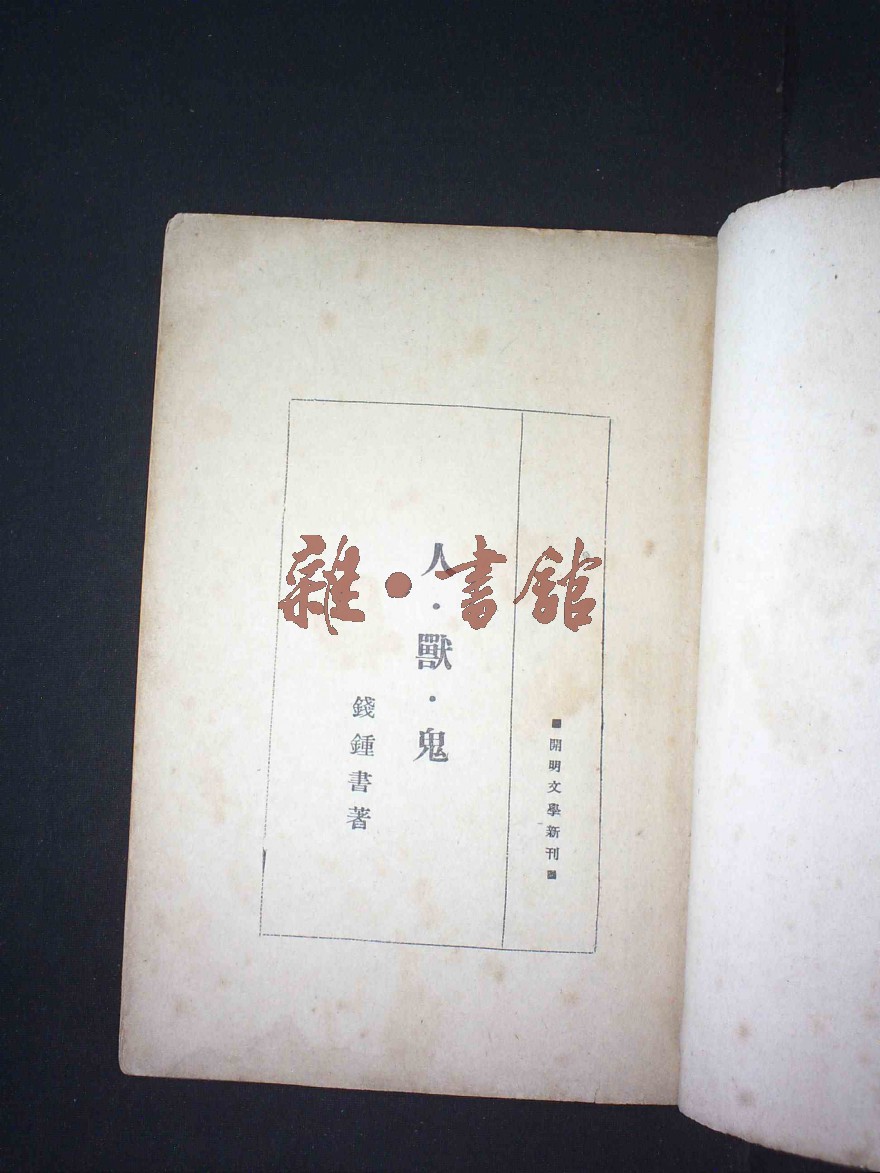 ■開明文學新刊■
人·獸·鬼
錢鍾書著
雜·書館